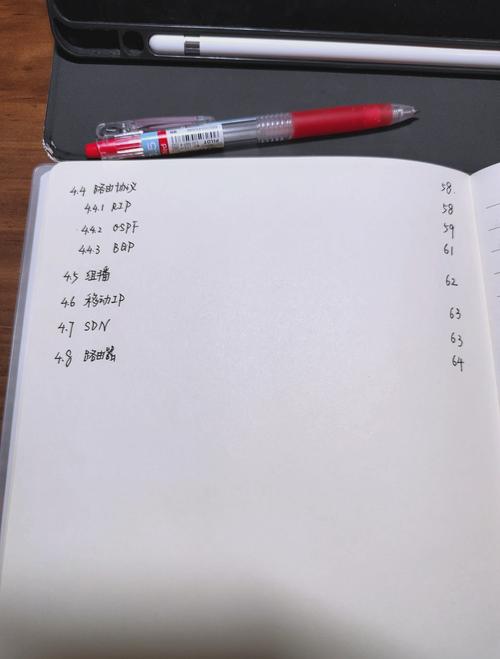 4.4 路由协议 58.
4.4.1 RIP 58
4.4.2 OSPF 59
4.4.3 BGP 61
4.5 组播 62
4.6 移动IP 63
4.7 SDN 63
4.8 路由器 64
PILOT